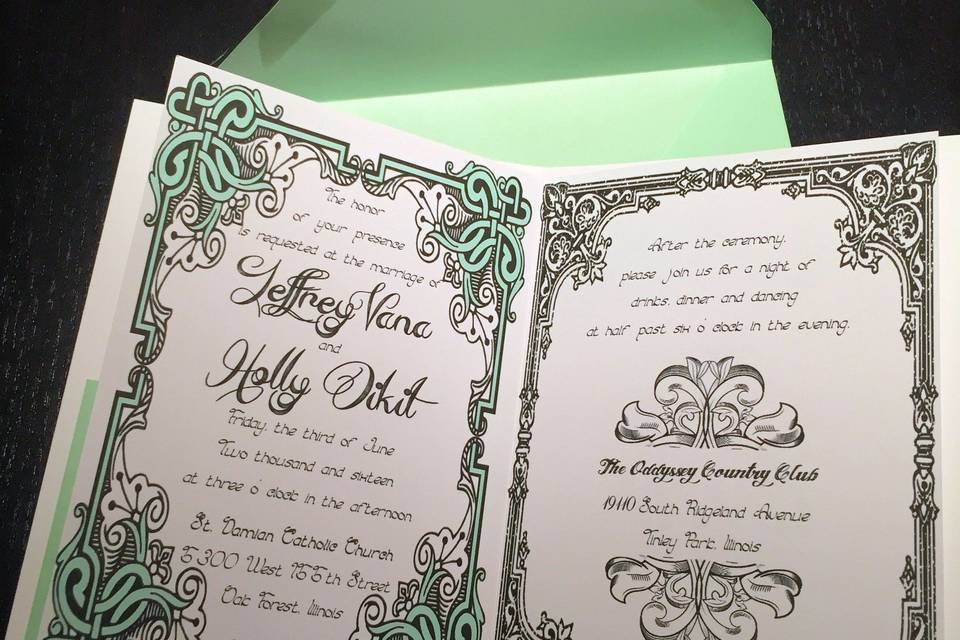 The honor
of your presence
is requested at the marriage of
Jeffrey Vana
and
Holly Dikit
Friday, the third of June
Two thousand and sixteen
at three o' clock in the afternoon
St. Damian Catholic Church
5300 West 155th Street
Oak Forest, Illinois
After the ceremony,
please join us for a night of
drinks, dinner and dancing
at half past six o' clock in the evening.
The Oddyssey Country Club
19110 South Ridgeland Avenue
Tinley Park, Illinois